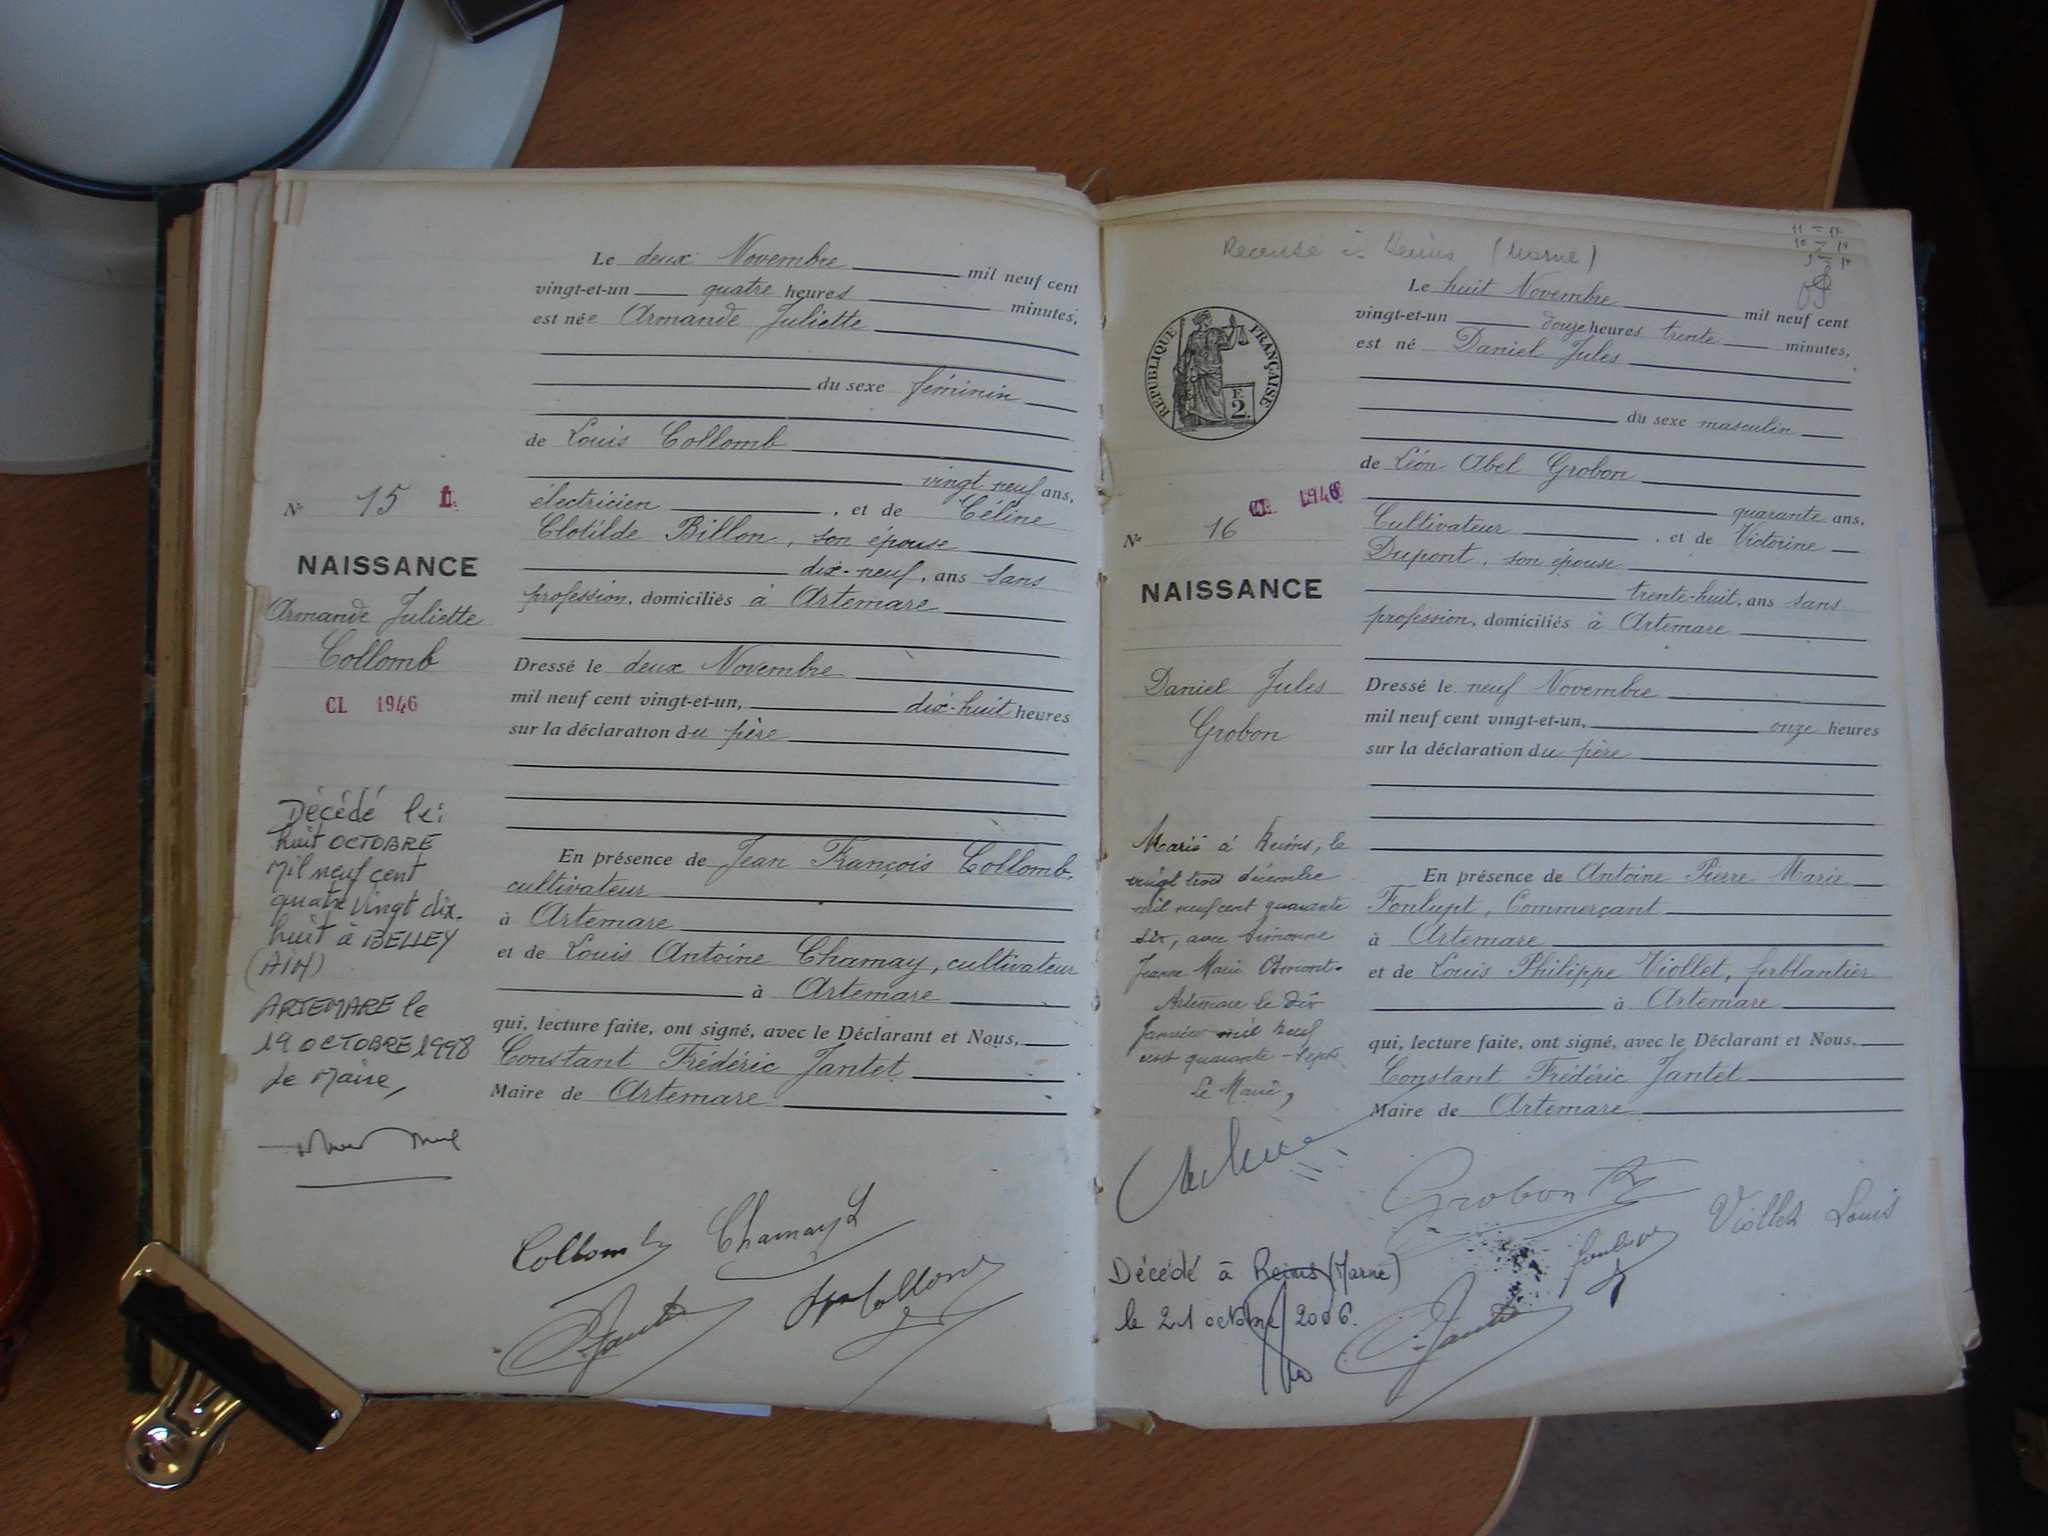 Le deux Novembre mil neuf cent
vingt-et-un quatre heures minutes,
est née Armande Juliette
du sexe féminin
de Louis Collomb
vingt neuf ans,
électricien , et de Céline
Clotilde Billon, son épouse
dix-neuf, ans sans
profession, domiciliés à Artemare
Dressé le deux Novembre
mil neuf cent vingt-et-un, dix-huit heures
sur la déclaration du père
En présence de Jean François Collomb,
cultivateur
à Artemare
et de Louis Antoine Chamay, cultivateur
à Artemare
qui, lecture faite, ont signé, avec le Déclarant et Nous,
Constant Frédéric Jantet
Maire de Artemare
N° 15
NAISSANCE
Armande Juliette
Collomb
CL 1946
Décédé le:
huit OCTOBRE
Mil neuf cent
quatre vingt dix-
huit à BELLEY
(AIN)
ARTEMARE le
19 OCTOBRE 1998
Le Maire,
Collomb Chamay L
Jantet
Recensé à Reims (Marne)
Le huit Novembre mil neuf cent
vingt-et-un douze heures trente minutes,
est né Daniel Jules
du sexe masculin
de Léon Abel Grobon
quarante ans,
Cultivateur , et de Victorine
Dupont, son épouse
trente-huit, ans sans
profession, domiciliés à Artemare
Dressé le neuf Novembre
mil neuf cent vingt-et-un, onze heures
sur la déclaration du père
En présence de Antoine Pierre Marie
Fonlupt, Commerçant
à Artemare
et de Louis Philippe Viollet, ferblantier
à Artemare
qui, lecture faite, ont signé, avec le Déclarant et Nous,
Constant Frédéric Jantet
Maire de Artemare
REPUBLIQUE FRANÇAISE
F.
2.
CL 1946
N° 16
NAISSANCE
Daniel Jules
Grobon
Marié à Reims, le
vingt trois décembre
mil neuf cent quarante
six, avec Simonne
Jeanne Marie Osmont.
Artemare le dix
Janvier mil neuf
cent quarante-sept
Le Maire,
Grobon
Viollet Louis
Fonlupt
Jantet
Décédé à Reims (Marne)
le 21 octobre 2006.